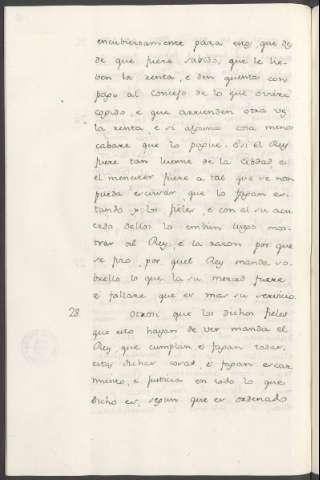 encubiertamente para eno, que des
de que fuere sabido, que le lie-
ven la renta, e den quenta con
pago al Concejo de lo que oviere
cogido, e que arrienden otra vez
la renta, e si alguna cosa meno
cabare que lo pague. E si el Rey
fuere tan luenne de la Cibdad o
el menester fuere a tal que se non
pueda escusar, que lo fagan es-
tando y los fieles, e con el su acu
erdo dellos lo embien luego mos-
trar al Rey, e la razon por que
se fizo, por quel Rey mande so-
brello lo que la su merced fuere
e fallare que es mas su servicio.
28 Otrosi que los dichos fieles
que esto hayan de ver manda el
Rey, que cumplan, e fagan todas
estas dichas cosas, e fagan escar
miento, e justicia en todo lo que
dicho es, segun que es ordenado